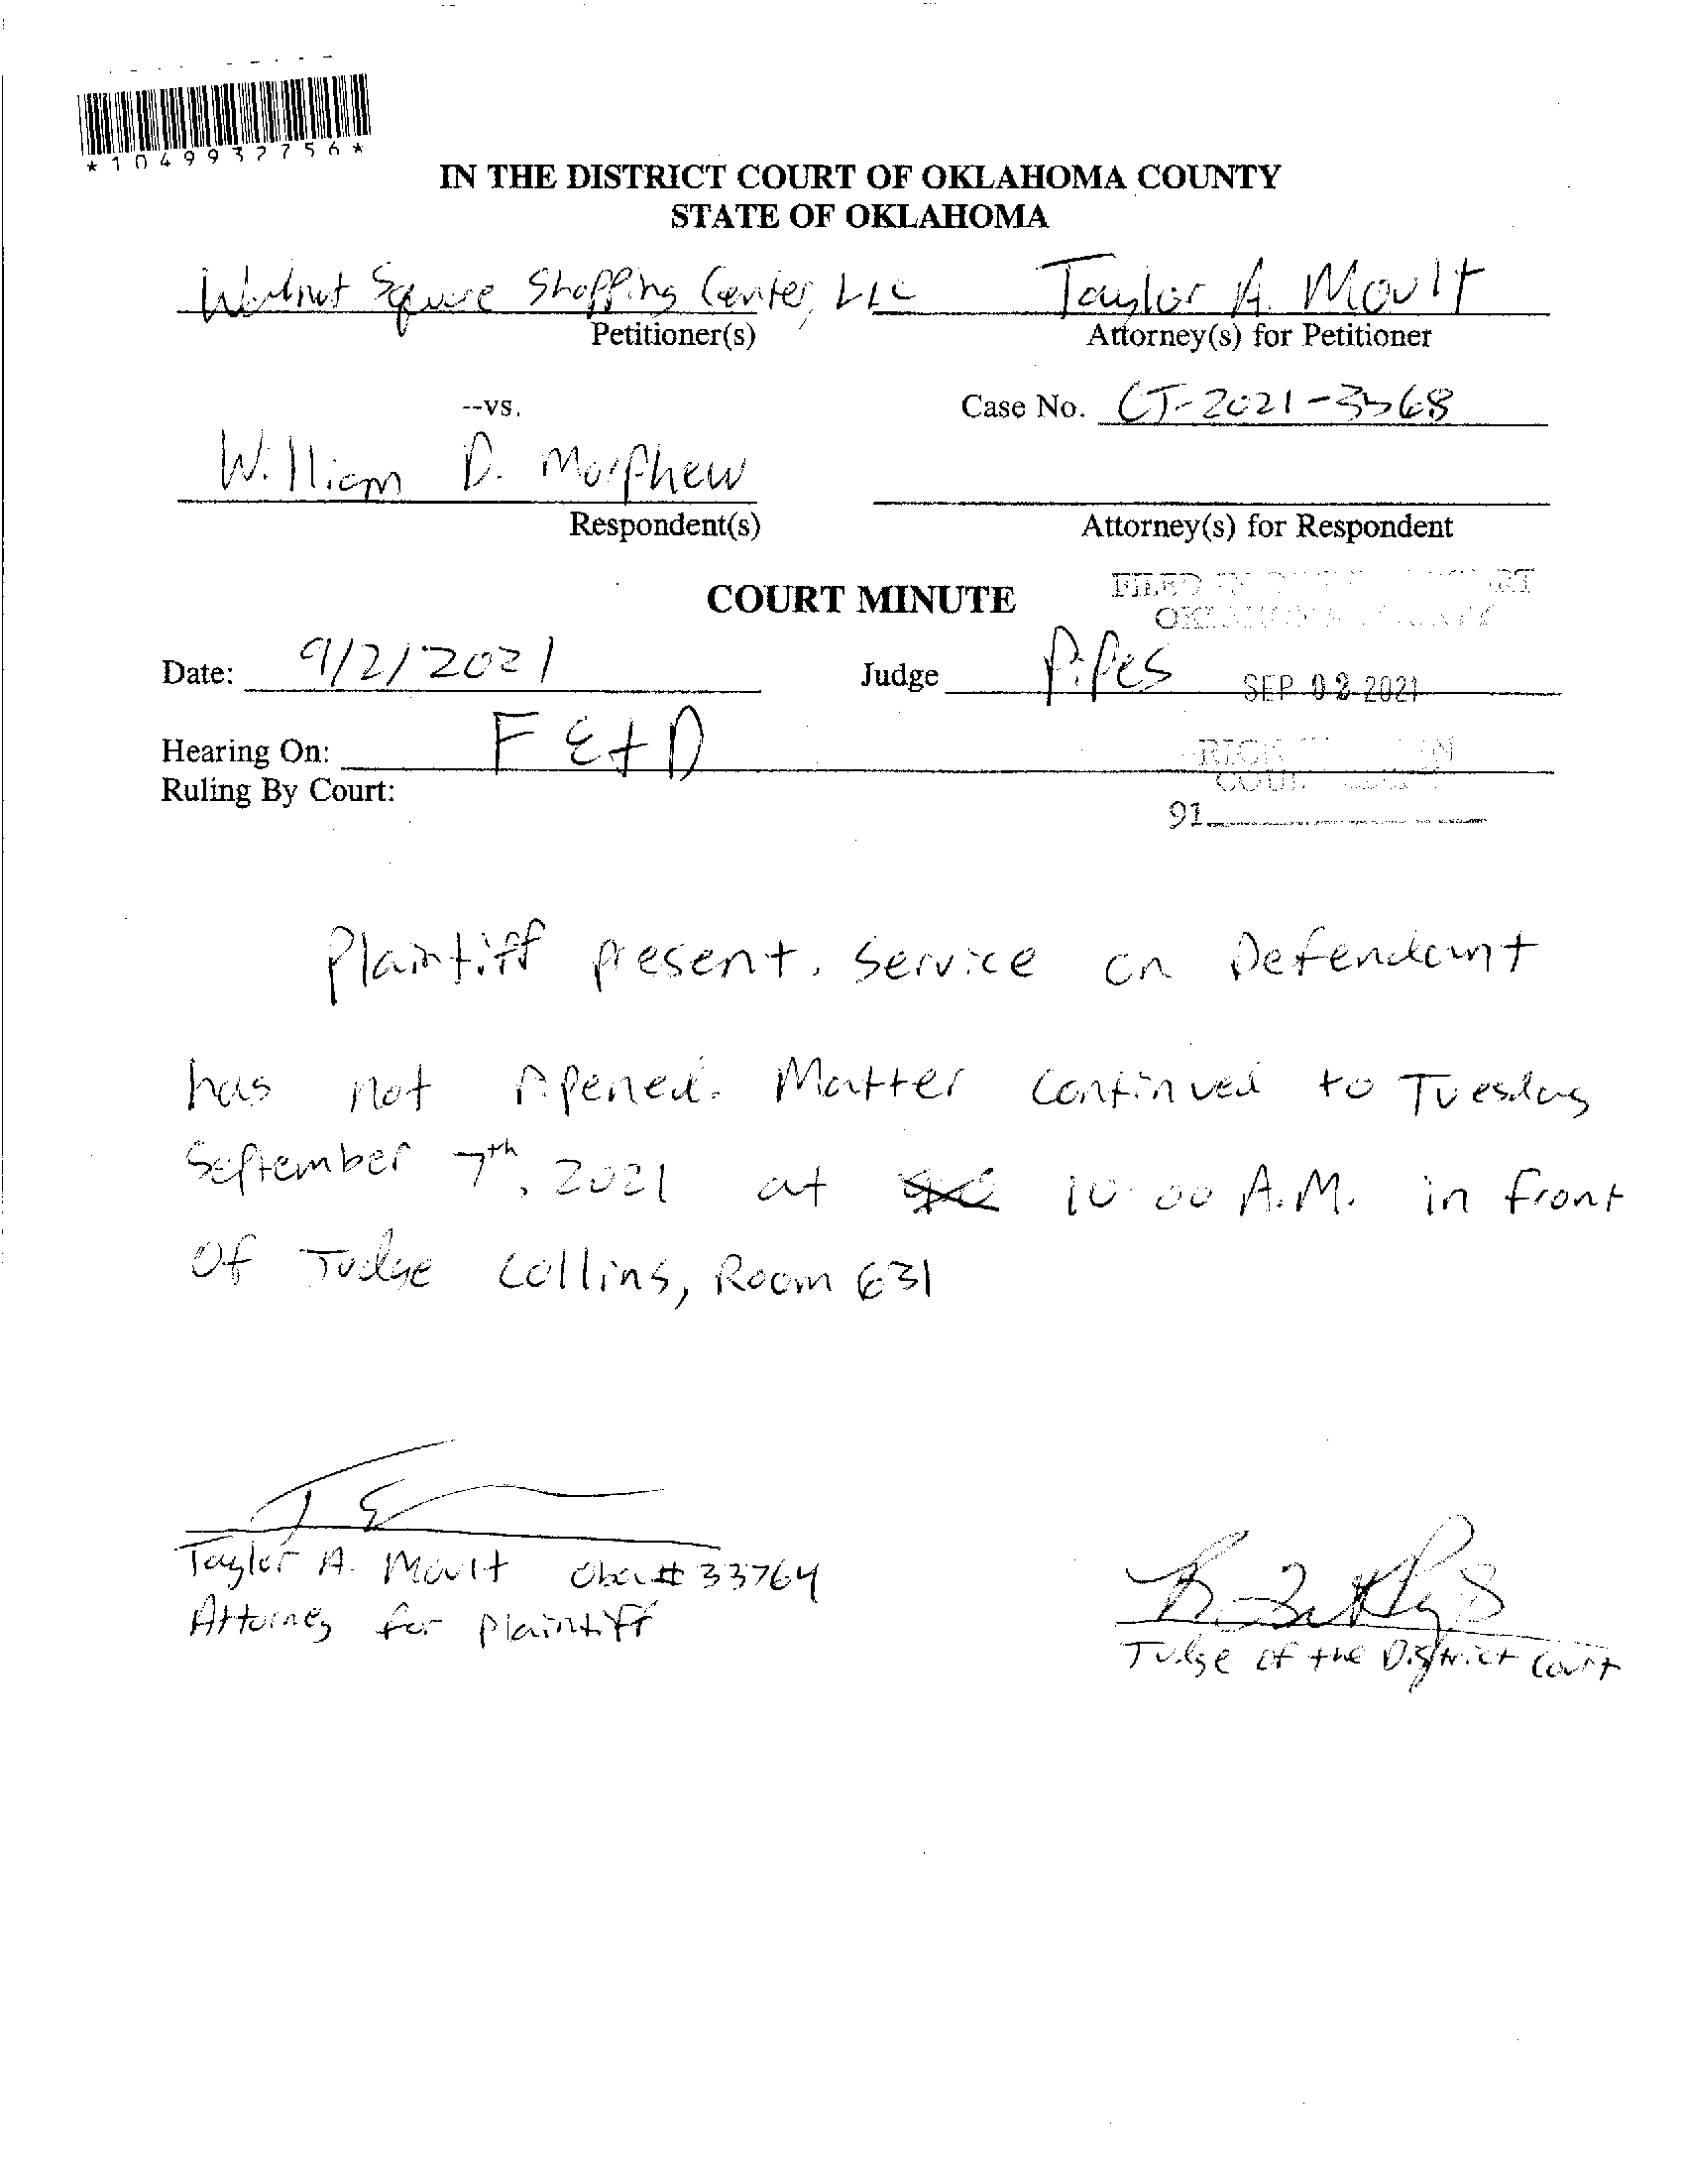 *1049932756*
IN THE DISTRICT COURT OF OKLAHOMA COUNTY
STATE OF OKLAHOMA
Walnut Square Shopping Center, LLC Taylor A. Moult
Petitioner(s) Attorney(s) for Petitioner
--vs. Case No. CJ-2021-3568
William D. Morphew
Respondent(s) Attorney(s) for Respondent
COURT MINUTE
Date: 9/2/2021 Judge Pipes
SEP 02 2021
Hearing On: F E+D
Ruling By Court:
91
Plaintiff present. Service on Defendant
has not ripened. Matter continued to Tuesday
September 7th, 2021 at 10:00 A.M. in front
of Judge Collins, Room 631
Taylor A. Moult Oba# 33764
Attorney for Plaintiff
Judge of the District Court